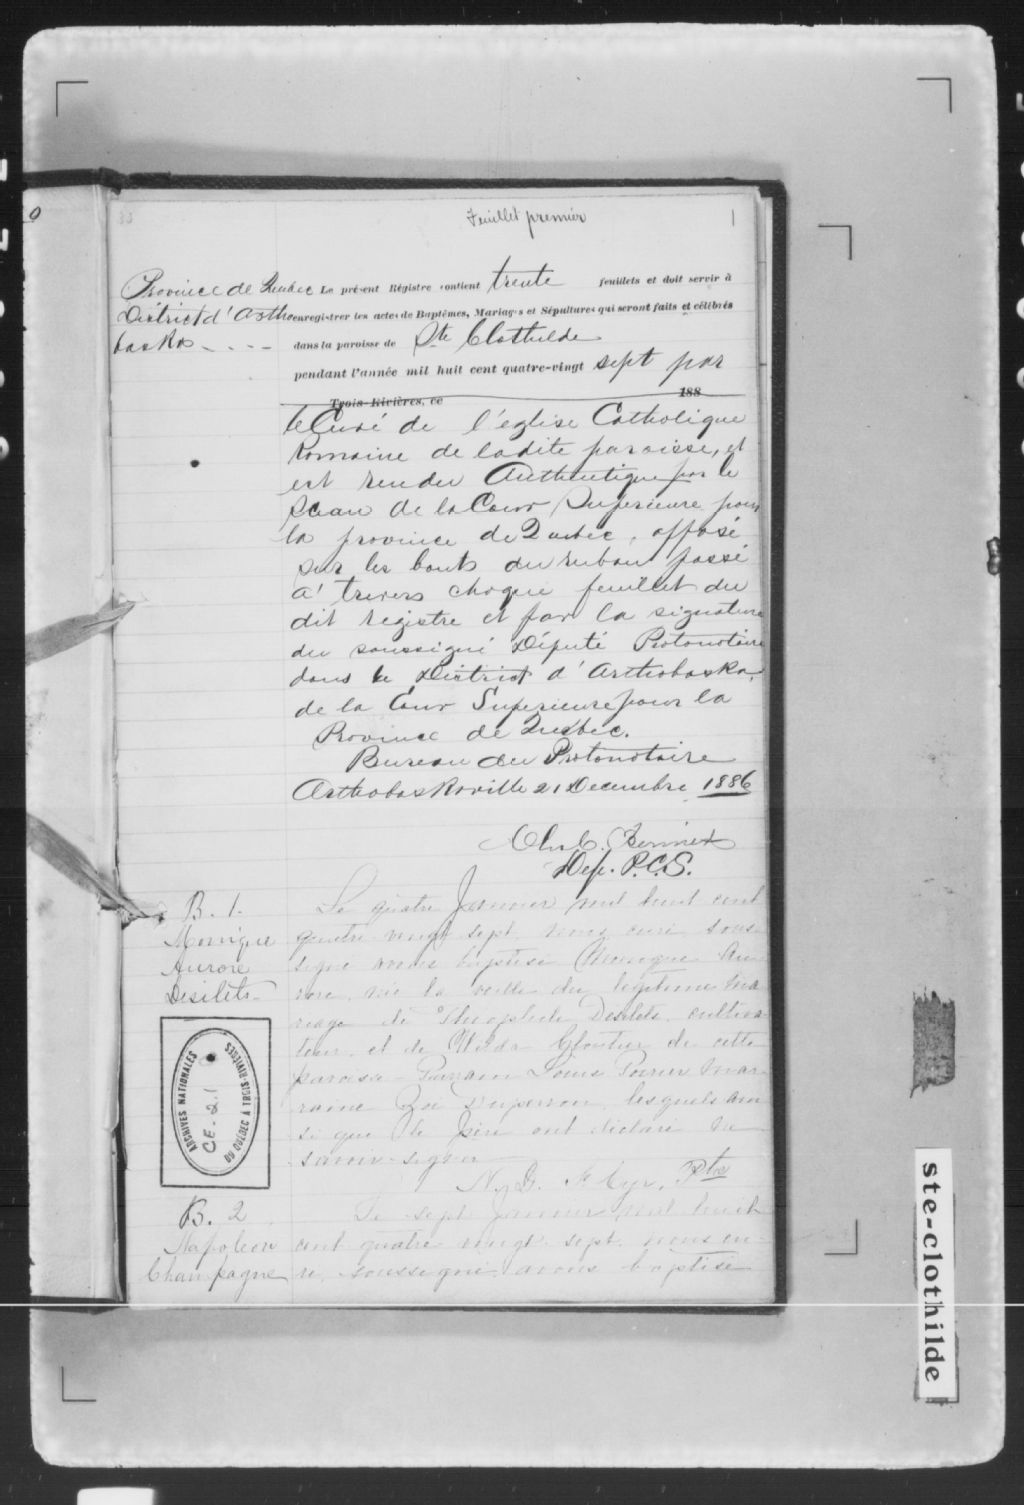 Feuillet premier
1
Province de Quebec
District d'Artha
baska - - - -
Le présent Régistre contient trente feuillets et doit servir à
enregistrer les actes de Baptêmes, Mariages et Sépultures qui seront faits et célébrés
dans la paroisse de Ste Clothilde
pendant l'année mil huit cent quatre-vingt sept par
Trois-Rivières, ce 188
le Curé de l'église Catholique
Romaine de ladite paroisse, et
est rendu Authentique par le
Sceau de la Cour Superieure pour
la province de Quebec, apposé
sur les bouts du ruban passé
a' travers chaque feuillet du
dit registre et par la signature
du soussigné Député Protonotaire
dans le District d'Arthabaska,
de la Cour Superieure pour la
Province de Quebec.
Bureau du Protonotaire
Arthabaskaville 21 Decembre 1886
Dep. P.C.S.
B. 1.
Monique
Aurore
Desilets
Le quatre Janvier mil huit cent
quatre-vingt sept, nous curé sous-
signé avons baptisé Monique Au-
rore, née la veille du légitime ma
riage de Theophile Desilets, cultiva
teur, et de Cloutier de cette
paroisse - Parrain Louis Poirier mar-
raine Zoé Duperron, lesquels ain
si que le père ont déclaré ne
savoir signer
N. D. St Cyr, Ptre
ARCHIVES NATIONALES
DU QUÉBEC À TROIS-RIVIÈRES
B. 2
Napoleon
Champagne
Le sept Janvier mil huit
cent quatre vingt-sept, nous cu-
ré, soussigné, avons baptisé
ste-clothilde